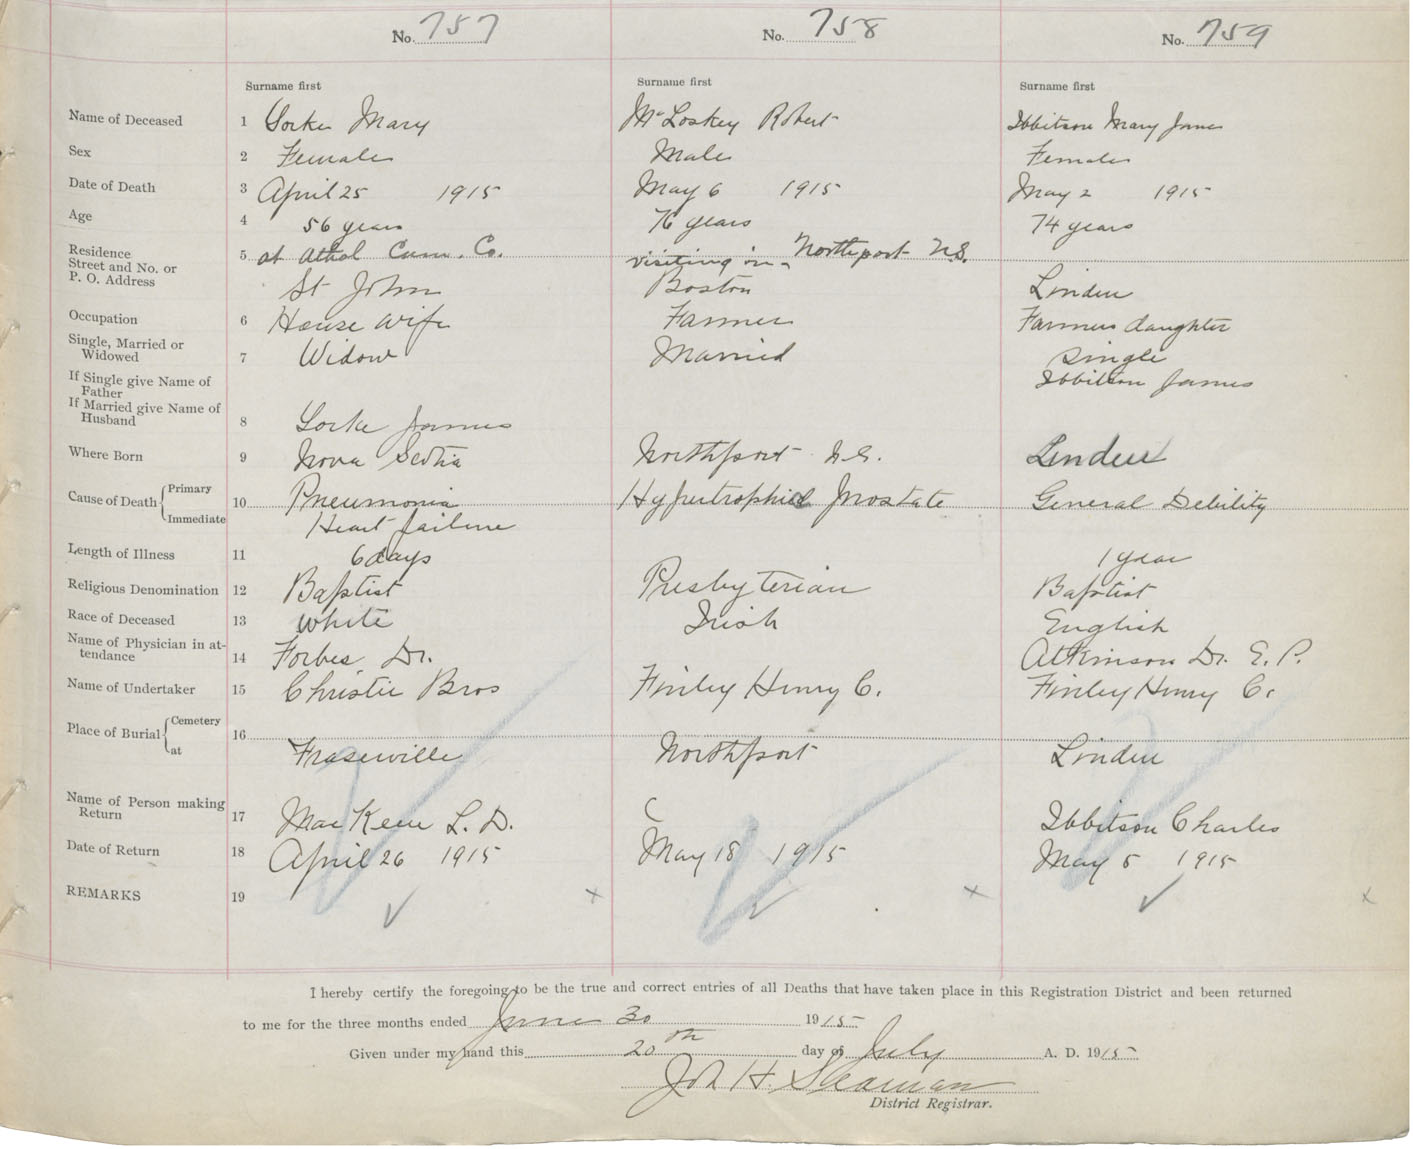 No. 757
No. 758
No. 759
Surname first
Surname first
Surname first
Name of Deceased 1 Locke Mary McLoskey Robert Ibbitson Mary Jane
Sex 2 Female Male Female
Date of Death 3 April 25 1915 May 6 1915 May 2 1915
Age 4 56 years 76 years 74 years
Residence 5 at Athol Cum. Co. visiting in Northport N.S.
Street and No. or
P. O. Address St John Boston Linden
Occupation 6 House wife Farmer Farmers daughter
Single, Married or
Widowed 7 Widow Married Single
If Single give Name of
Father Ibbitson James
If Married give Name of
Husband 8 Locke James
Where Born 9 Nova Scotia Northport N.S. Linden
Cause of Death { Primary 10 Pneumonia Hypertrophied Prostate General Debility
Immediate Heart failure
Length of Illness 11 6 days 1 year
Religious Denomination 12 Baptist Presbyterian Baptist
Race of Deceased 13 White Irish English
Name of Physician in at-
tendance 14 Forbes, Dr. Atkinson Dr. E. P.
Name of Undertaker 15 Christie Bros Finley Henry C. Finley Henry C.
Place of Burial { Cemetery 16
at Fraserville Northport Linden
Name of Person making
Return 17 MacKeen L. D. Ibbitson Charles
Date of Return 18 April 26 1915 May 18 1915 May 5 1915
REMARKS 19
I hereby certify the foregoing to be the true and correct entries of all Deaths that have taken place in this Registration District and been returned
to me for the three months ended June 30 1915
Given under my hand this 20th day of July A. D. 1915
Joh H. Seaman
District Registrar.